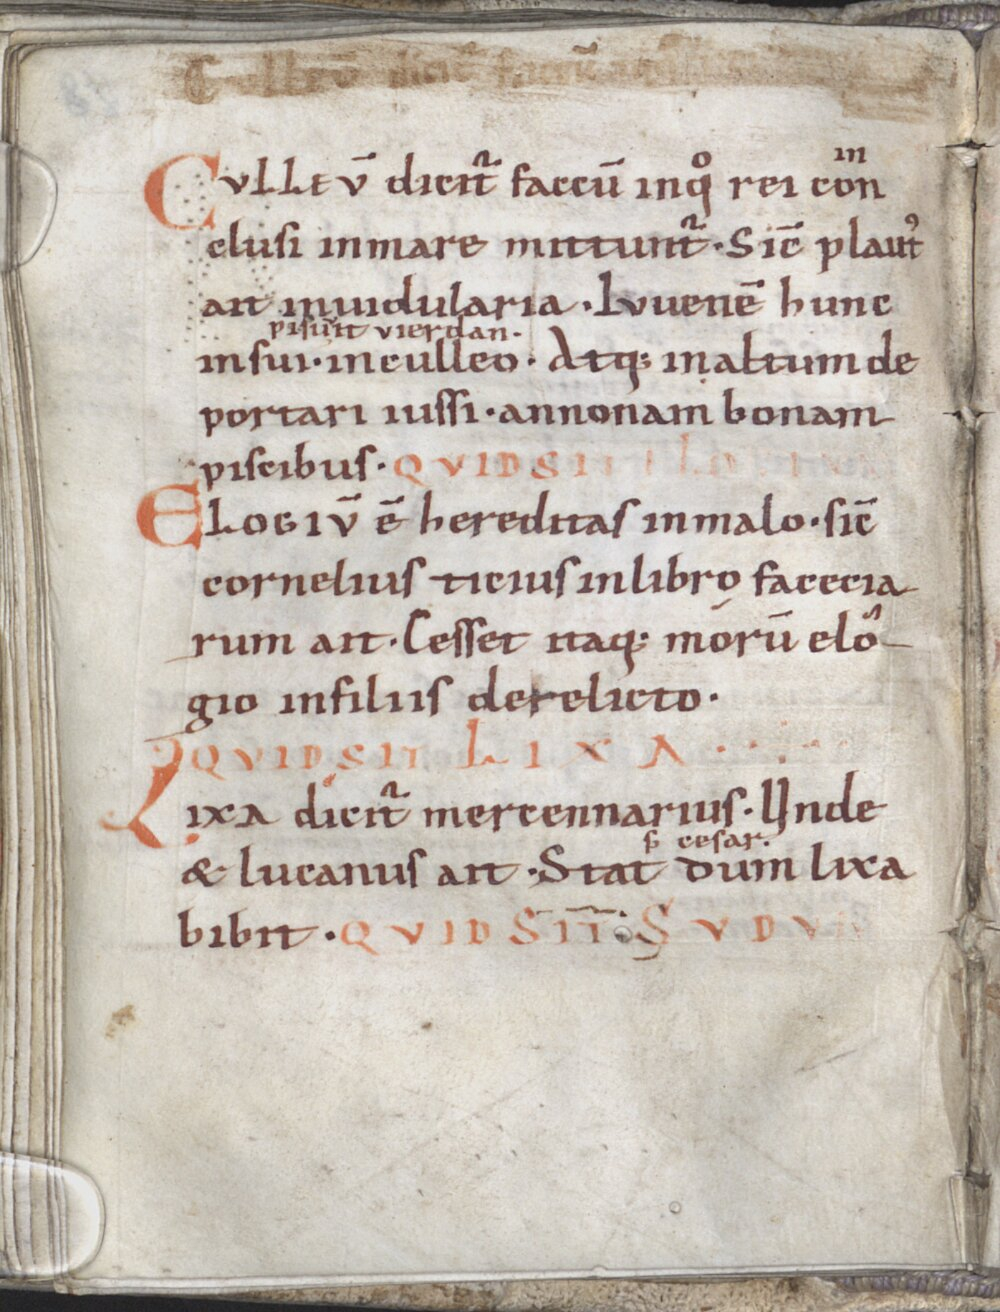 CVLLEV̄ dicit᷑ saccū inq̊ rei con
in
clusi inmare mittunt᷑. Sic̄ plaut᷒
ait inuidularia. Iuuenē hunc
insui. inculleo. Atq; inaltum de
pisunt vierdan.
portari iussi. annonam bonam
piscibus. QVID SIT
ELOGIV̄ ē hereditas inmalo. sic̄
cornelius ticius inlibro facecia
rum ait. Cesset itaq; morū elo
gio infiliis derelicto.
QVID SIT LIXA.
LIXA dicit᷑ mercennarius. Unde
& lucanus ait. Stat dum lixa
s̄ cesar.
bibit. QVID SIT SVDV